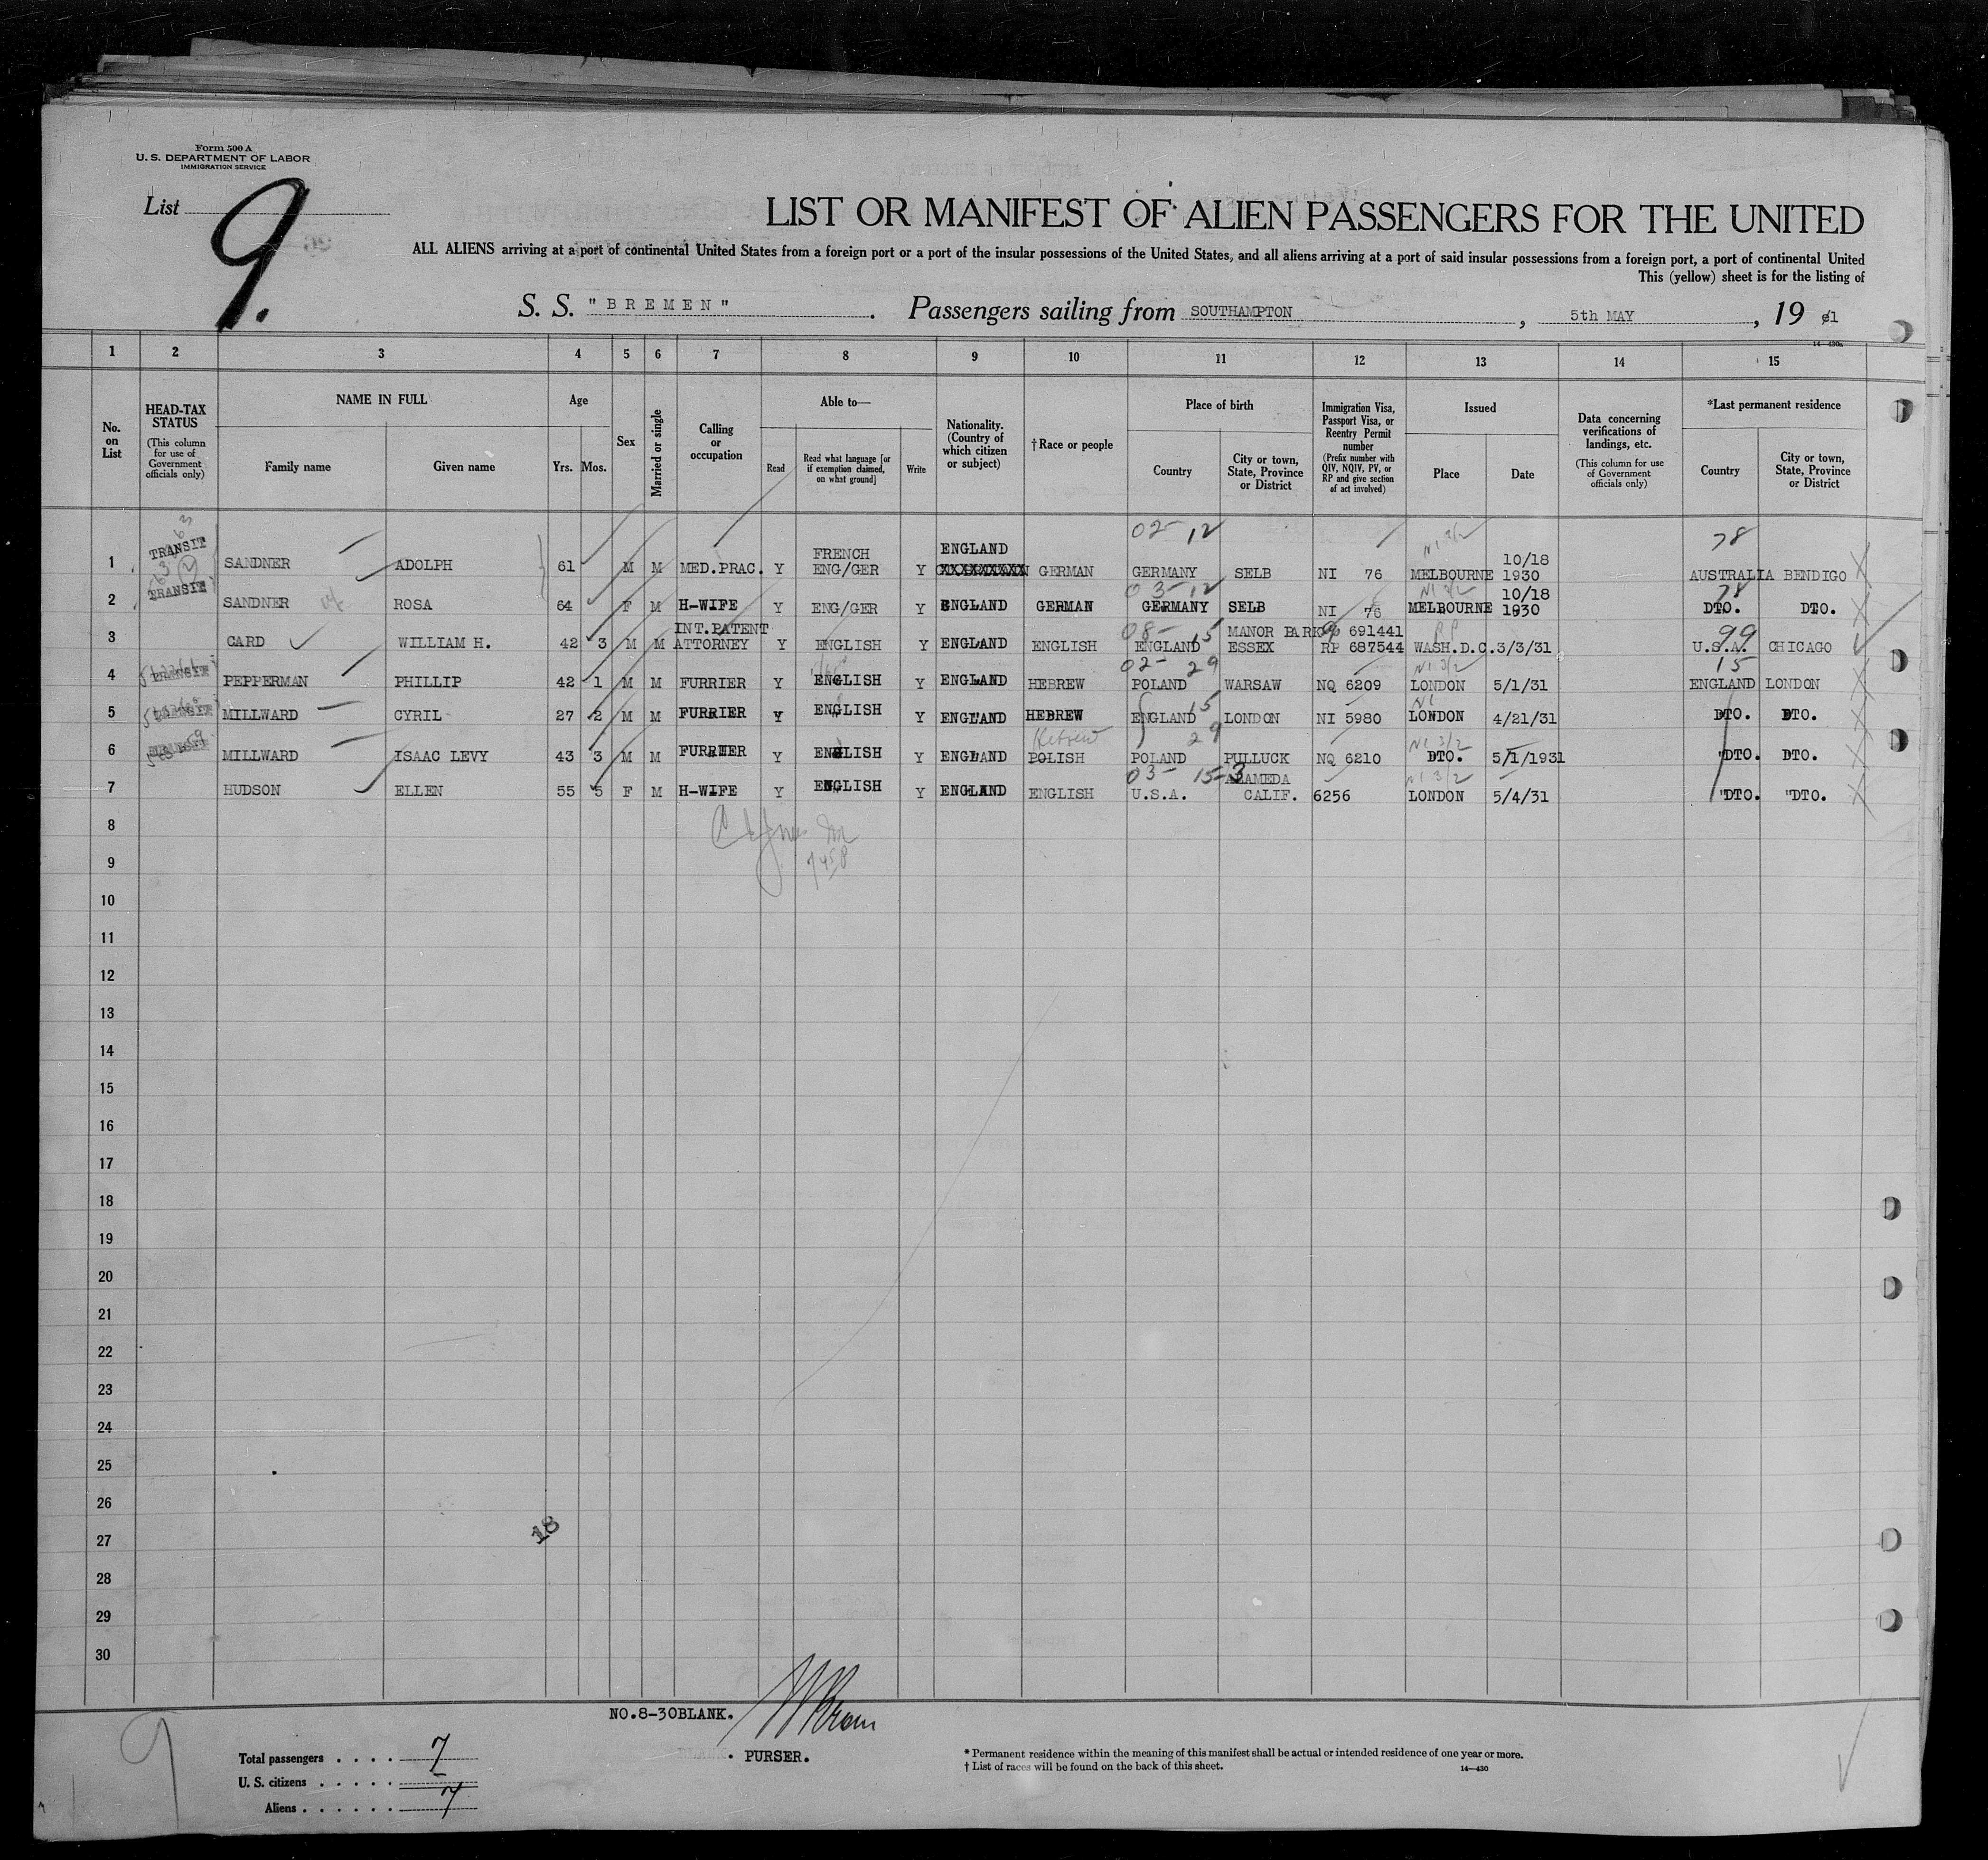 Form 500 A
U. S. DEPARTMENT OF LABOR
IMMIGRATION SERVICE
List 9.
LIST OR MANIFEST OF ALIEN PASSENGERS FOR THE UNITED
ALL ALIENS arriving at a port of continental United States from a foreign port or a port of the insular possessions of the United States, and all aliens arriving at a port of said insular possessions from a foreign port, a port of continental United
This (yellow) sheet is for the listing of
S. S. "BREMEN". Passengers sailing from SOUTHAMPTON, 5th MAY, 19 31
14—430
1 2 3 4 5 6 7 8 9 10 11 12 13 14 15
No. on List
HEAD-TAX STATUS (This column for use of Government officials only)
NAME IN FULL
Family name Given name
Age
Yrs. Mos.
Sex
Married or single
Calling or occupation
Able to—
Read
Read what language [or if exemption claimed, on what ground]
Write
Nationality. (Country of which citizen or subject)
†Race or people
Place of birth
Country
City or town, State, Province or District
Immigration Visa, Passport Visa, or Reentry Permit number (Prefix number with QIV, NQIV, PV, or RP and give section of act involved)
Issued
Place Date
Data concerning verifications of landings, etc. (This column for use of Government officials only)
*Last permanent residence
Country
City or town, State, Province or District
02- 12 NI 3/2 78
1 TRANSIT SANDNER ADOLPH 61 M M MED.PRAC. Y FRENCH ENG/GER Y ENGLAND XXXXXXXXX GERMAN GERMANY SELB NI 76 MELBOURNE 10/18 1930 AUSTRALIA BENDIGO
03-12 NI 3/2 78
2 TRANSIT SANDNER ROSA 64 F M H-WIFE Y ENG/GER Y ENGLAND GERMAN GERMANY SELB NI 76 MELBOURNE 10/18 1930 DTO. DTO.
08- 15 RP 99
3 CARD WILLIAM H. 42 3 M M INT.PATENT ATTORNEY Y ENGLISH Y ENGLAND ENGLISH ENGLAND MANOR PARK ESSEX 691441 RP 687544 WASH.D.C. 3/3/31 U.S.A. CHICAGO
02- 29 NI 3/2 15
4 TRANSIT PEPPERMAN PHILLIP 42 1 M M FURRIER Y ENGLISH Y ENGLAND HEBREW POLAND WARSAW NQ 6209 LONDON 5/1/31 ENGLAND LONDON
15 NI
5 TRANSIT MILLWARD CYRIL 27 2 M M FURRIER Y ENGLISH Y ENGLAND HEBREW ENGLAND LONDON NI 5980 LONDON 4/21/31 DTO. DTO.
Hebrew 29 NI 3/2
6 MILLWARD ISAAC LEVY 43 3 M M FURRIER Y ENGLISH Y ENGLAND POLISH POLAND PULLUCK NQ 6210 DTO. 5/1/1931 "DTO. DTO.
03- 15-3 NI 3/2
7 HUDSON ELLEN 55 5 F M H-WIFE Y ENGLISH Y ENGLAND ENGLISH U.S.A. ALAMEDA CALIF. 6256 LONDON 5/4/31 "DTO. "DTO.
8
9
10
11
12
13
14
15
16
17
18
19
20
21
22
23
24
25
26
27
28
29
30
18
NO.8-30BLANK.
PURSER.
9
Total passengers . . . . 7
U. S. citizens . . . . .
Aliens . . . . . . 7
* Permanent residence within the meaning of this manifest shall be actual or intended residence of one year or more.
† List of races will be found on the back of this sheet.
14—430